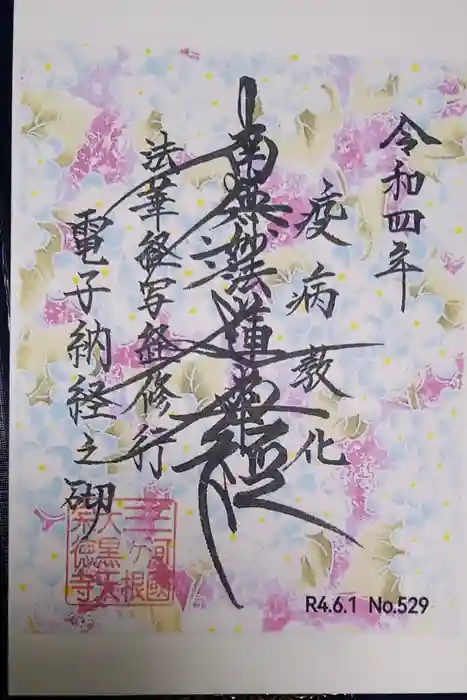 令和四年
疫病教化
南無妙法蓮華経
法華経写経修行
電子納経之砌
三河國
ヶ根
大黒天
宗徳寺
R4.6.1 No.529